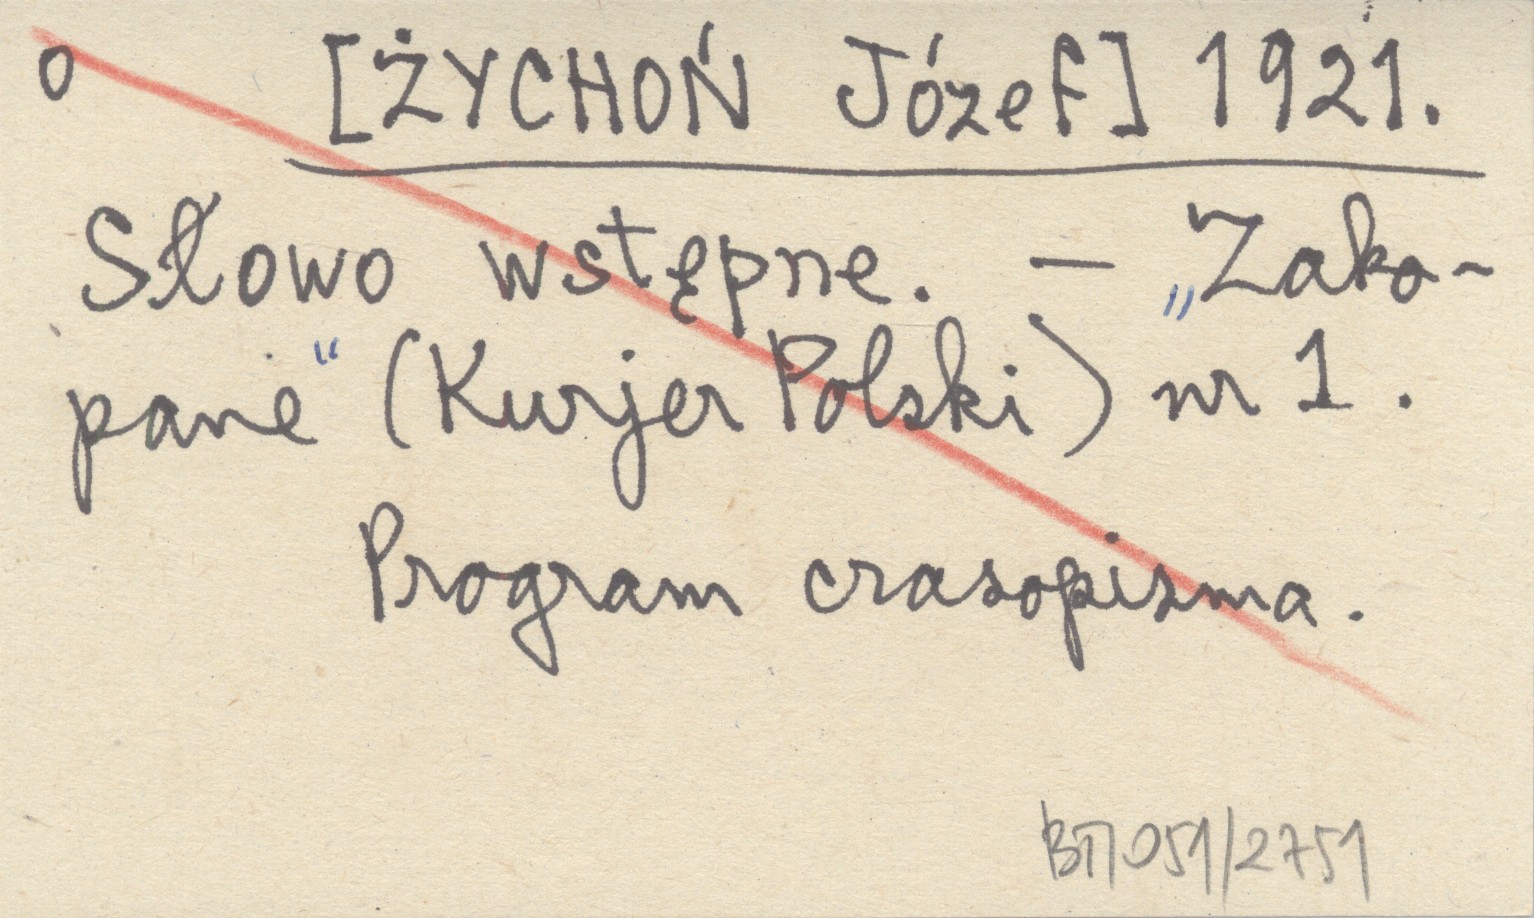 o [ŻYCHOŃ Józef] 1921.
Słowo wstępne. — „Zako-
pane“ (Kurjer Polski) nr 1.
Program czasopisma.
BП051/2751